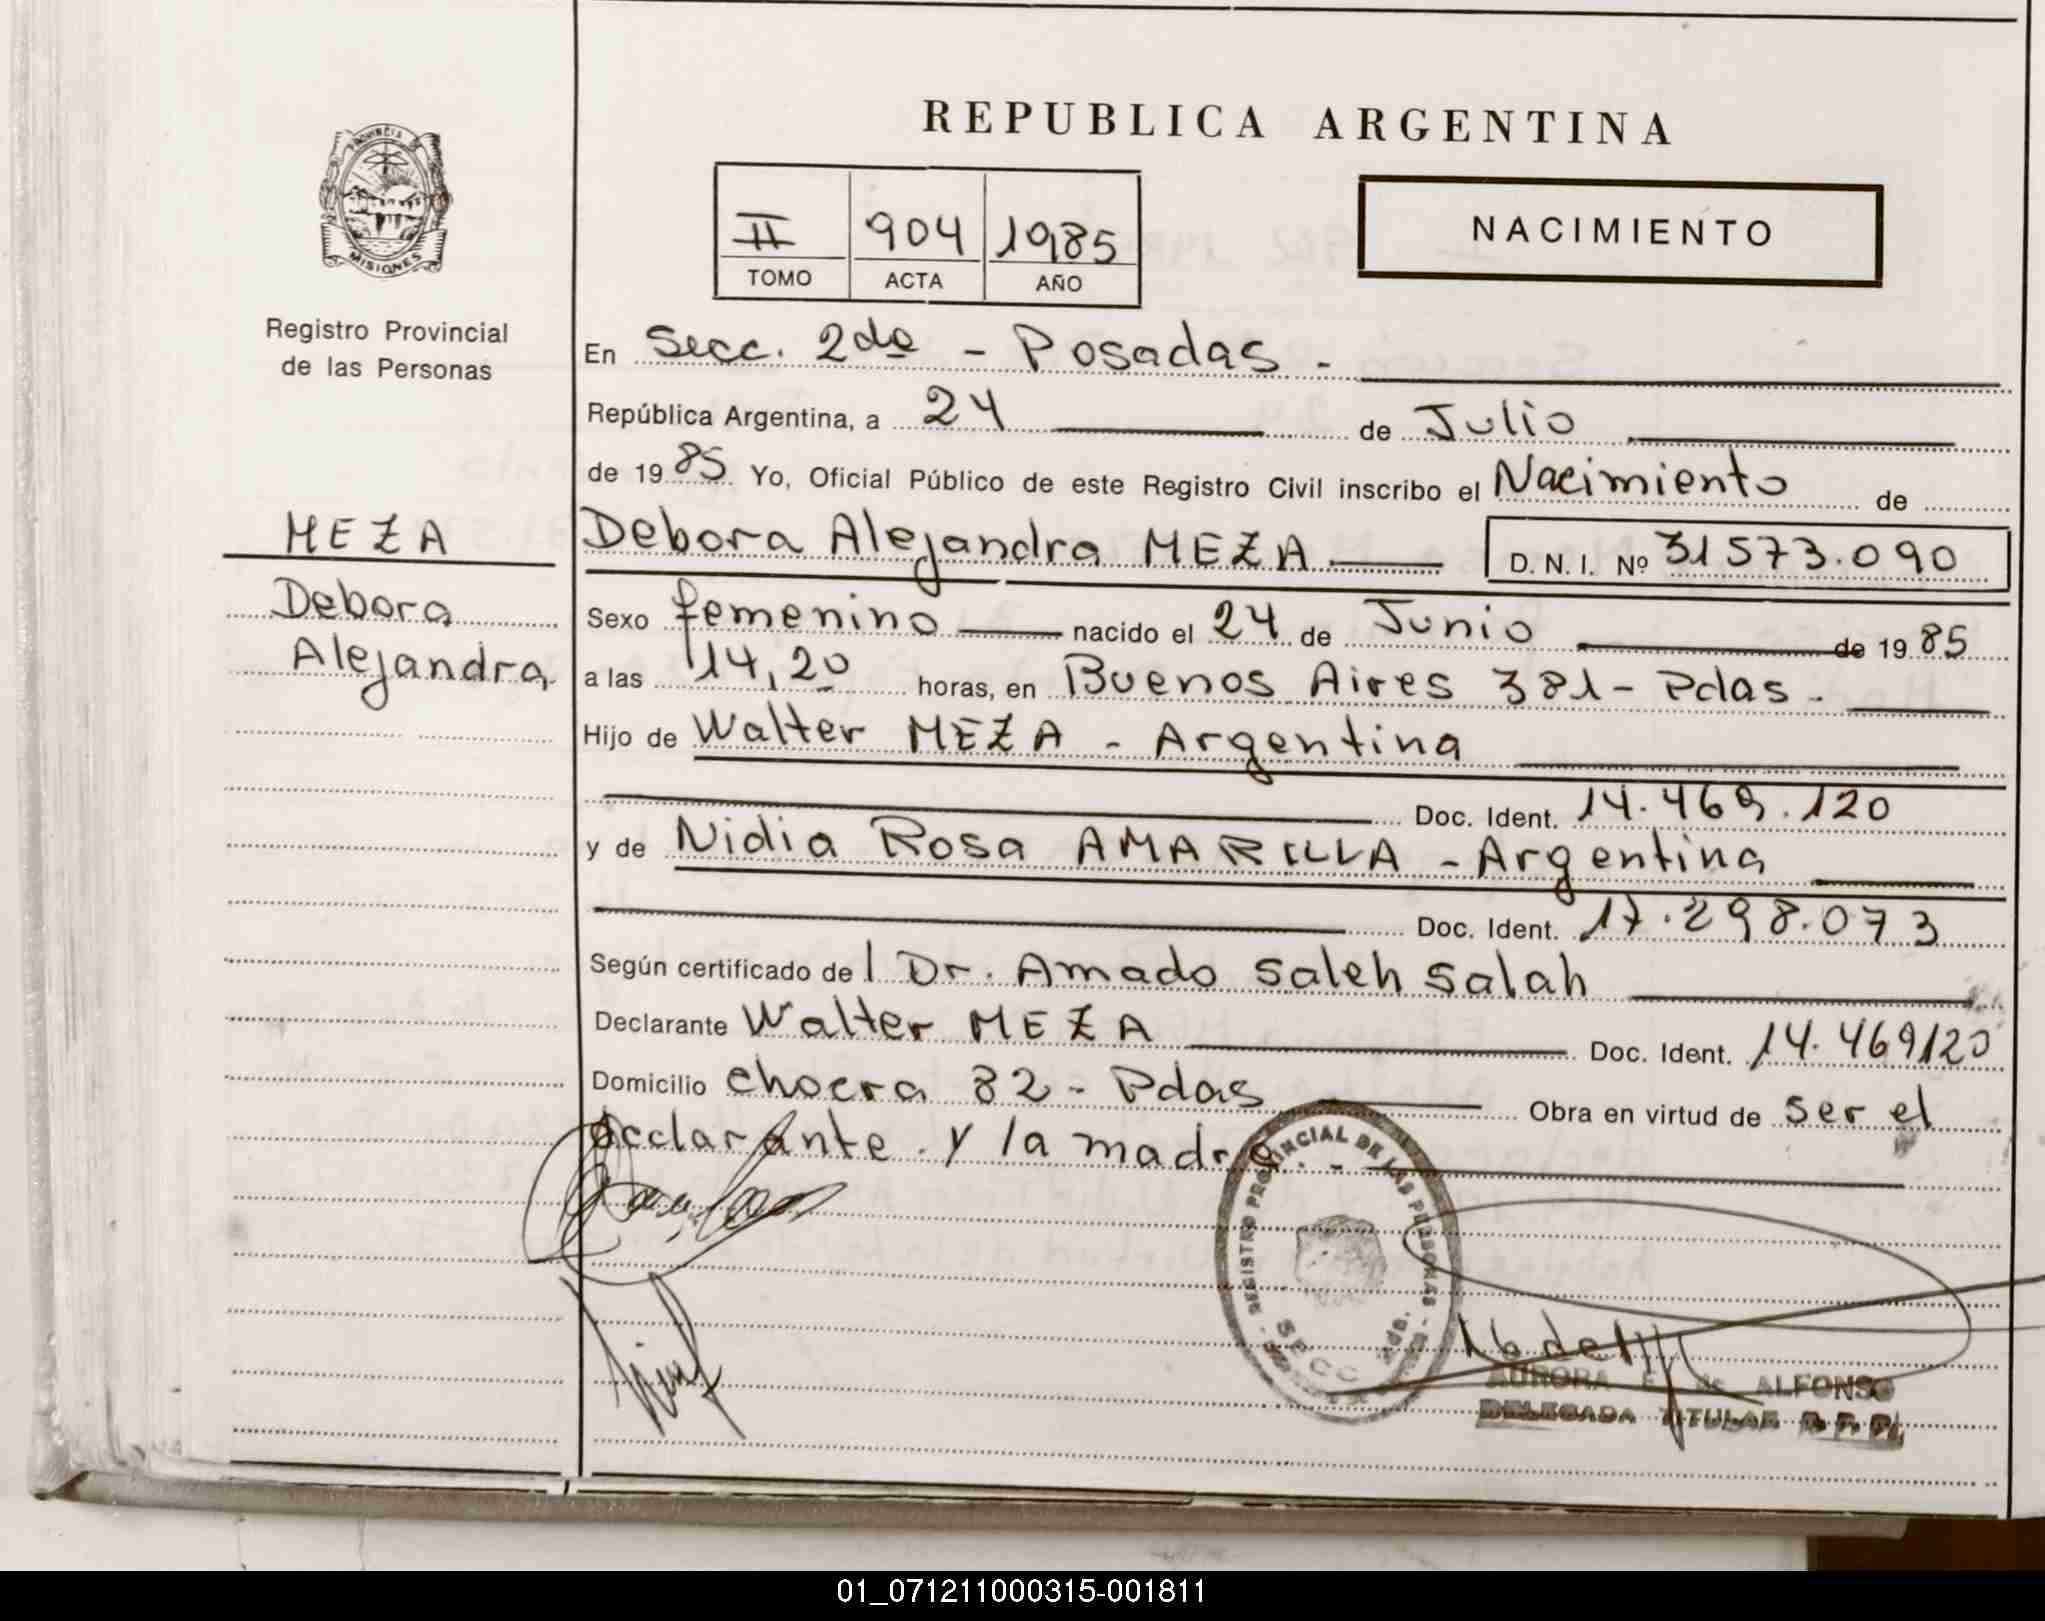 PROVINCIA DE
MISIONES
Registro Provincial
de las Personas
MEZA
Debora
Alejandra
REPUBLICA ARGENTINA
II 904 1985
TOMO ACTA AÑO
NACIMIENTO
En Secc. 2da - Posadas -
República Argentina, a 24 de Julio
de 1985 Yo, Oficial Público de este Registro Civil inscribo el Nacimiento de
Debora Alejandra MEZA D. N. I. Nº 31573.090
Sexo femenino nacido el 24 de Junio de 1985
a las 14,20 horas, en Buenos Aires 381 - Pdas -
Hijo de Walter MEZA - Argentina
Doc. Ident. 14.469.120
y de Nidia Rosa AMARILLA - Argentina
Doc. Ident. 17.298.073
Según certificado del Dr. Amado Saleh Salah
Declarante Walter MEZA Doc. Ident. 14.469120
Domicilio chacra 82 - Pdas Obra en virtud de ser el
declarante y la madre. -
REGISTRO PROVINCIAL DE LAS PERSONAS
SECC
AURORA E. de ALFONSO
DELEGADA TITULAR R. P. P.
01_071211000315-001811